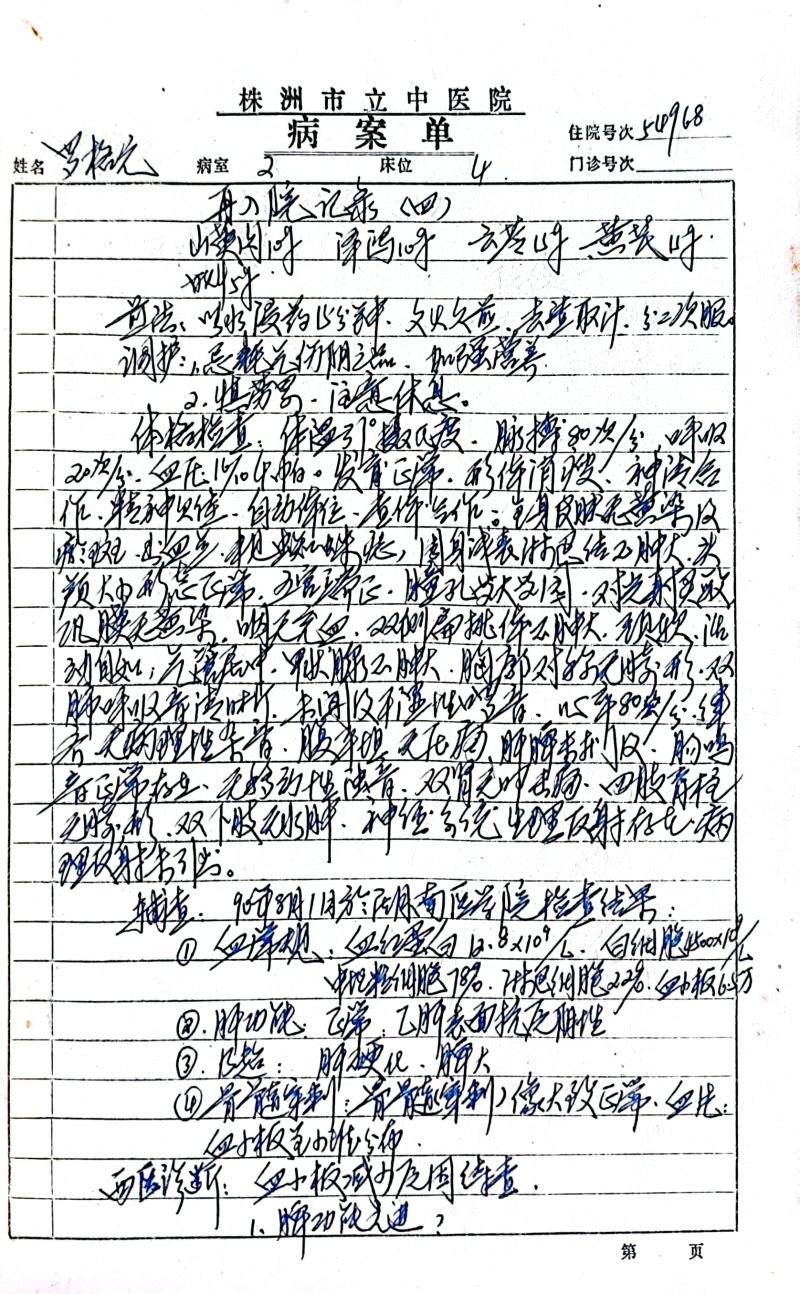 株洲市立中医院
病案单
住院号次 54968
姓名 罗 病室 2 床位 4 门诊号次
再入院记录（四）
山萸肉10g 泽泻10g 云苓15g 黄芪15g
5g
煎法：以水浸药15分钟，文火久煎，去渣取汁，分二次服。
调护：1、忌耗气伤阴之品，加强营养
2、慎劳累，注意休息。
体格检查：体温37°摄氏度，脉搏80次/分，呼吸
20次/分，血压16/10千帕。发育正常，形体消瘦，神清合
作，精神欠佳，自动体位，查体合作。全身皮肤无黄染及
瘀斑、出血点，蜘蛛痣，周身浅表淋巴结不肿大，头
颅大小形态正常，五官端正，瞳孔等大等圆，对光射灵敏
巩膜无黄染，咽无充血，双侧扁桃体不肿大，颈软，活
动自如；气管居中，甲状腺不肿大，胸廓对称无畸形，双
肺呼吸音清晰，未闻及干湿性啰音，心率80次/分，律
齐，无病理性杂音，腹平坦，无压痛，肝脾未扪及，肠鸣
音正常存在，无移动性浊音，双肾无叩击痛，四肢脊柱
无畸形，双下肢无水肿，神经系统生理反射存在，病
理反射未引出。
辅查：90年8月1日于湖南医学院检查结果：
① 血常规：血红蛋白12.8×10⁹/L，白细胞4500×10⁹/L
中性粒细胞78%，淋巴细胞22%，血小板6.5万
② 肝功能：正常，乙肝表面抗原阴性
③ B超：肝硬化，脾大
④ 骨髓穿刺：骨髓（穿刺）像大致正常，血片：
血小板呈小堆分布。
西医诊断：血小板减少原因待查。
1、脾功能亢进？
第 页